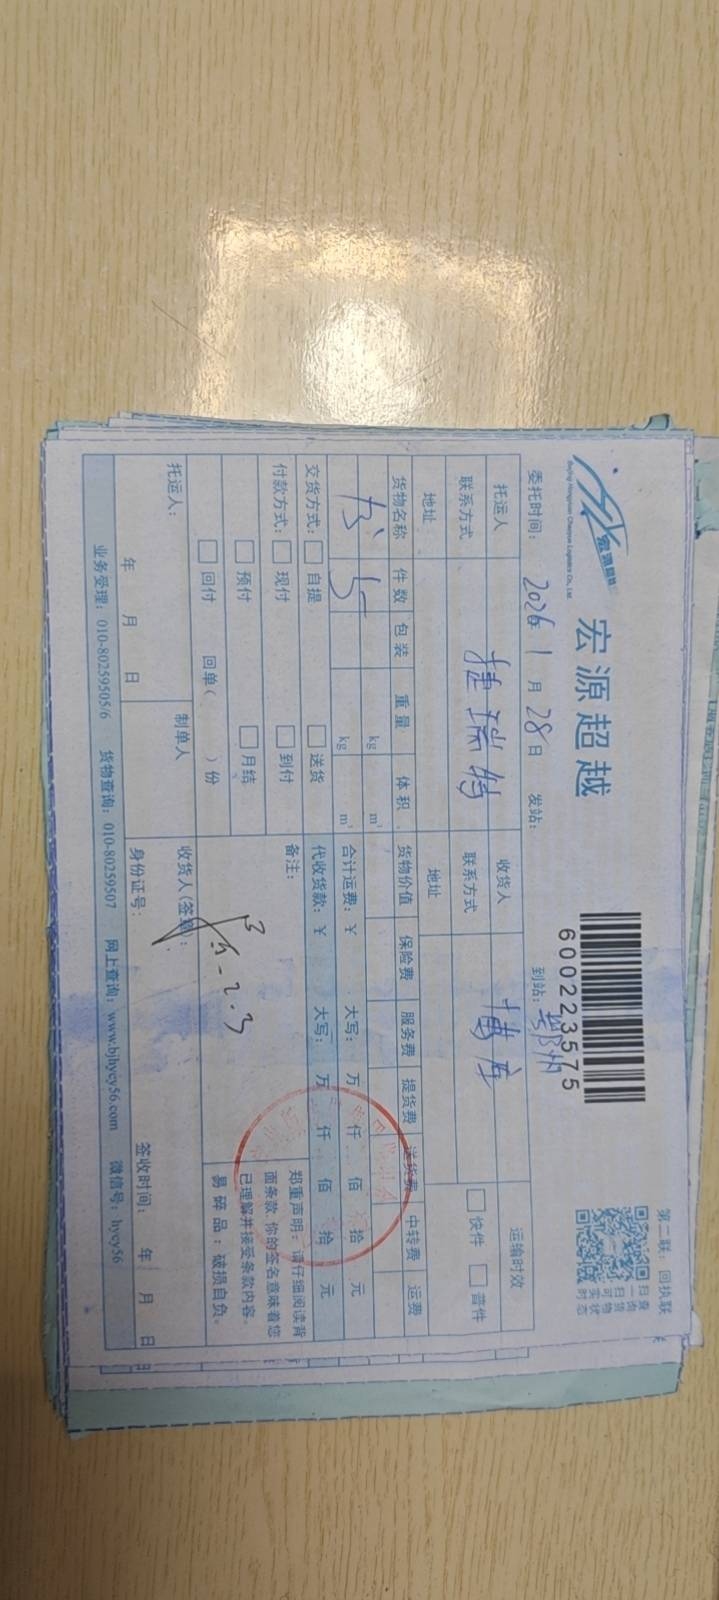 第二联：回执联
宏源超越
Beijing Hongyuan Chaoyue Logistics Co., Ltd.
宏源超越
600223575
扫一扫
查询货物
可实时状态
委托时间： 2026年 1 月 28日 发站： 到站： 鄂州
托运人 捷瑞特 收货人 博库 运输时效
联系方式 联系方式 快件 普件
地址 地址
货物名称 件数 包装 重量 体积 货物价值 保险费 服务费 提货费 送货费 中转费 运费
kg m³
书 5 kg m³ 合计运费：￥ 大写： 万 仟 佰 拾 元
交货方式： 自提 送货 代收货款：￥ 大写： 万 仟 佰 拾 元
付款方式： 现付 到付 备注：
预付 月结
回付 回单（ ）份
郑重声明：请仔细阅读背
面条款，你的签名意味着您
已理解并接受条款内容。
易碎品：破损自负。
2.3
托运人： 制单人 收货人(签章)：
年 月 日 身份证号： 签收时间： 年 月 日
业务受理：010-80259505/6 货物查询：010-80259507 网上查询：www.bjhycy56.com 微信号：hycy56